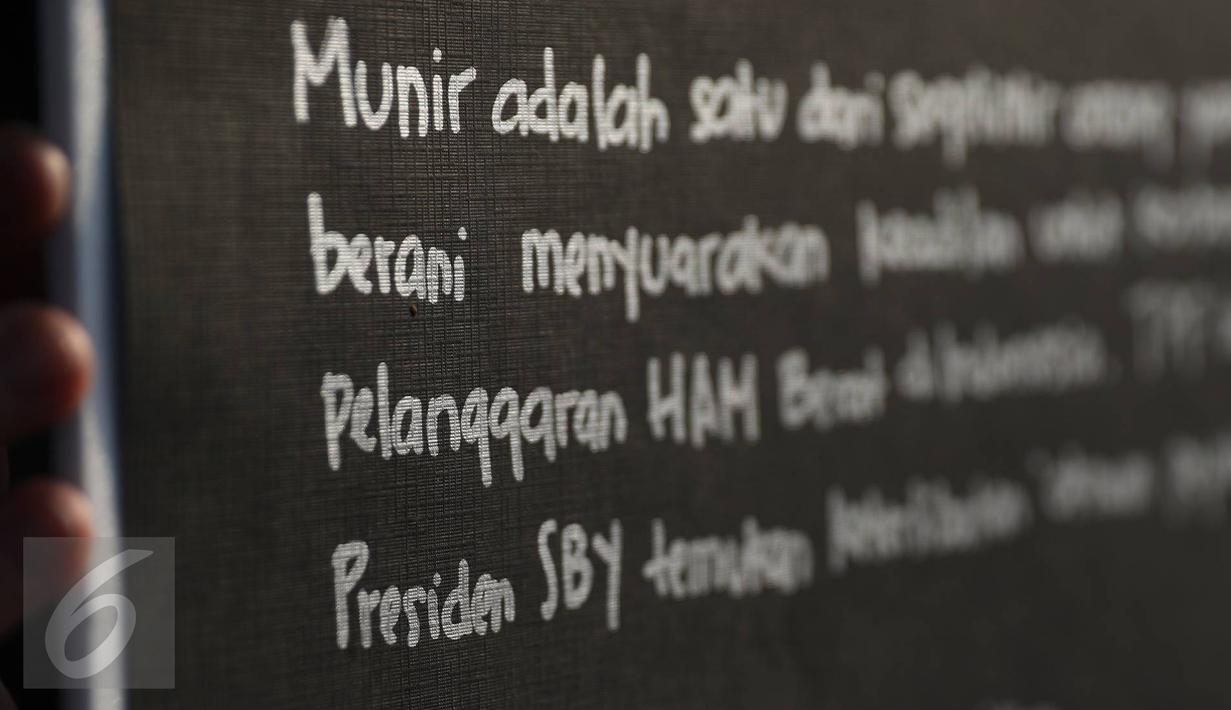 Munir adalah satu dari segelintir orang
berani menyuarakan keadilan untuk
pelanggaran HAM Berat di Indonesia. TPF
Presiden SBY temukan keterlibatan
6